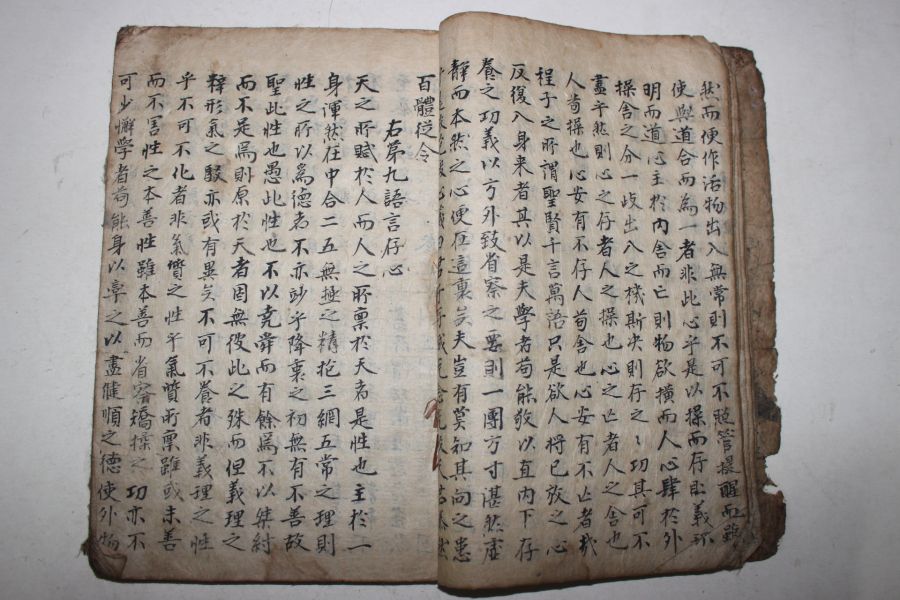 然而便作活物出入無常則不可不照管提醒而
使與道合而爲一者非此心乎是以操而存則義
明而道心主於內舍而亡則物欲橫而人心肆於外
操舍之分一歧出入之機斯決則存之之功其可不
盡乎然則心之存者人之操也心之亡者人之舍也
人苟操也心安有不存人苟舍也心安有不亡者哉
程子之所謂聖賢千言萬語只是欲人將已放之心
反復入身來者其以是夫學者苟能敬以直內下存
養之功義以方外致省察之要則一團方寸湛然虛
靜而本然之心便在這裏矣夫豈有莫知其向之患
百體從令
右第九語言存心
天之所賦於人而人之所稟於天者是性也主於一
身渾然在中合二五無極之精抱三綱五常之理則
性之所以爲德者不亦妙乎降衷之初無有不善故
聖此性也愚此性也不以堯舜而有餘焉不以桀紂
而不足焉則原於天者固無彼此之殊而但義理之
粹形氣之駁亦或有異矣不可不養者非義理之性
乎不可不化者非氣質之性乎氣質所稟雖或未善
而不害性之本善性雖本善而省察矯揉之功亦不
可少懈學者苟能身以率之以盡健順之德使外物